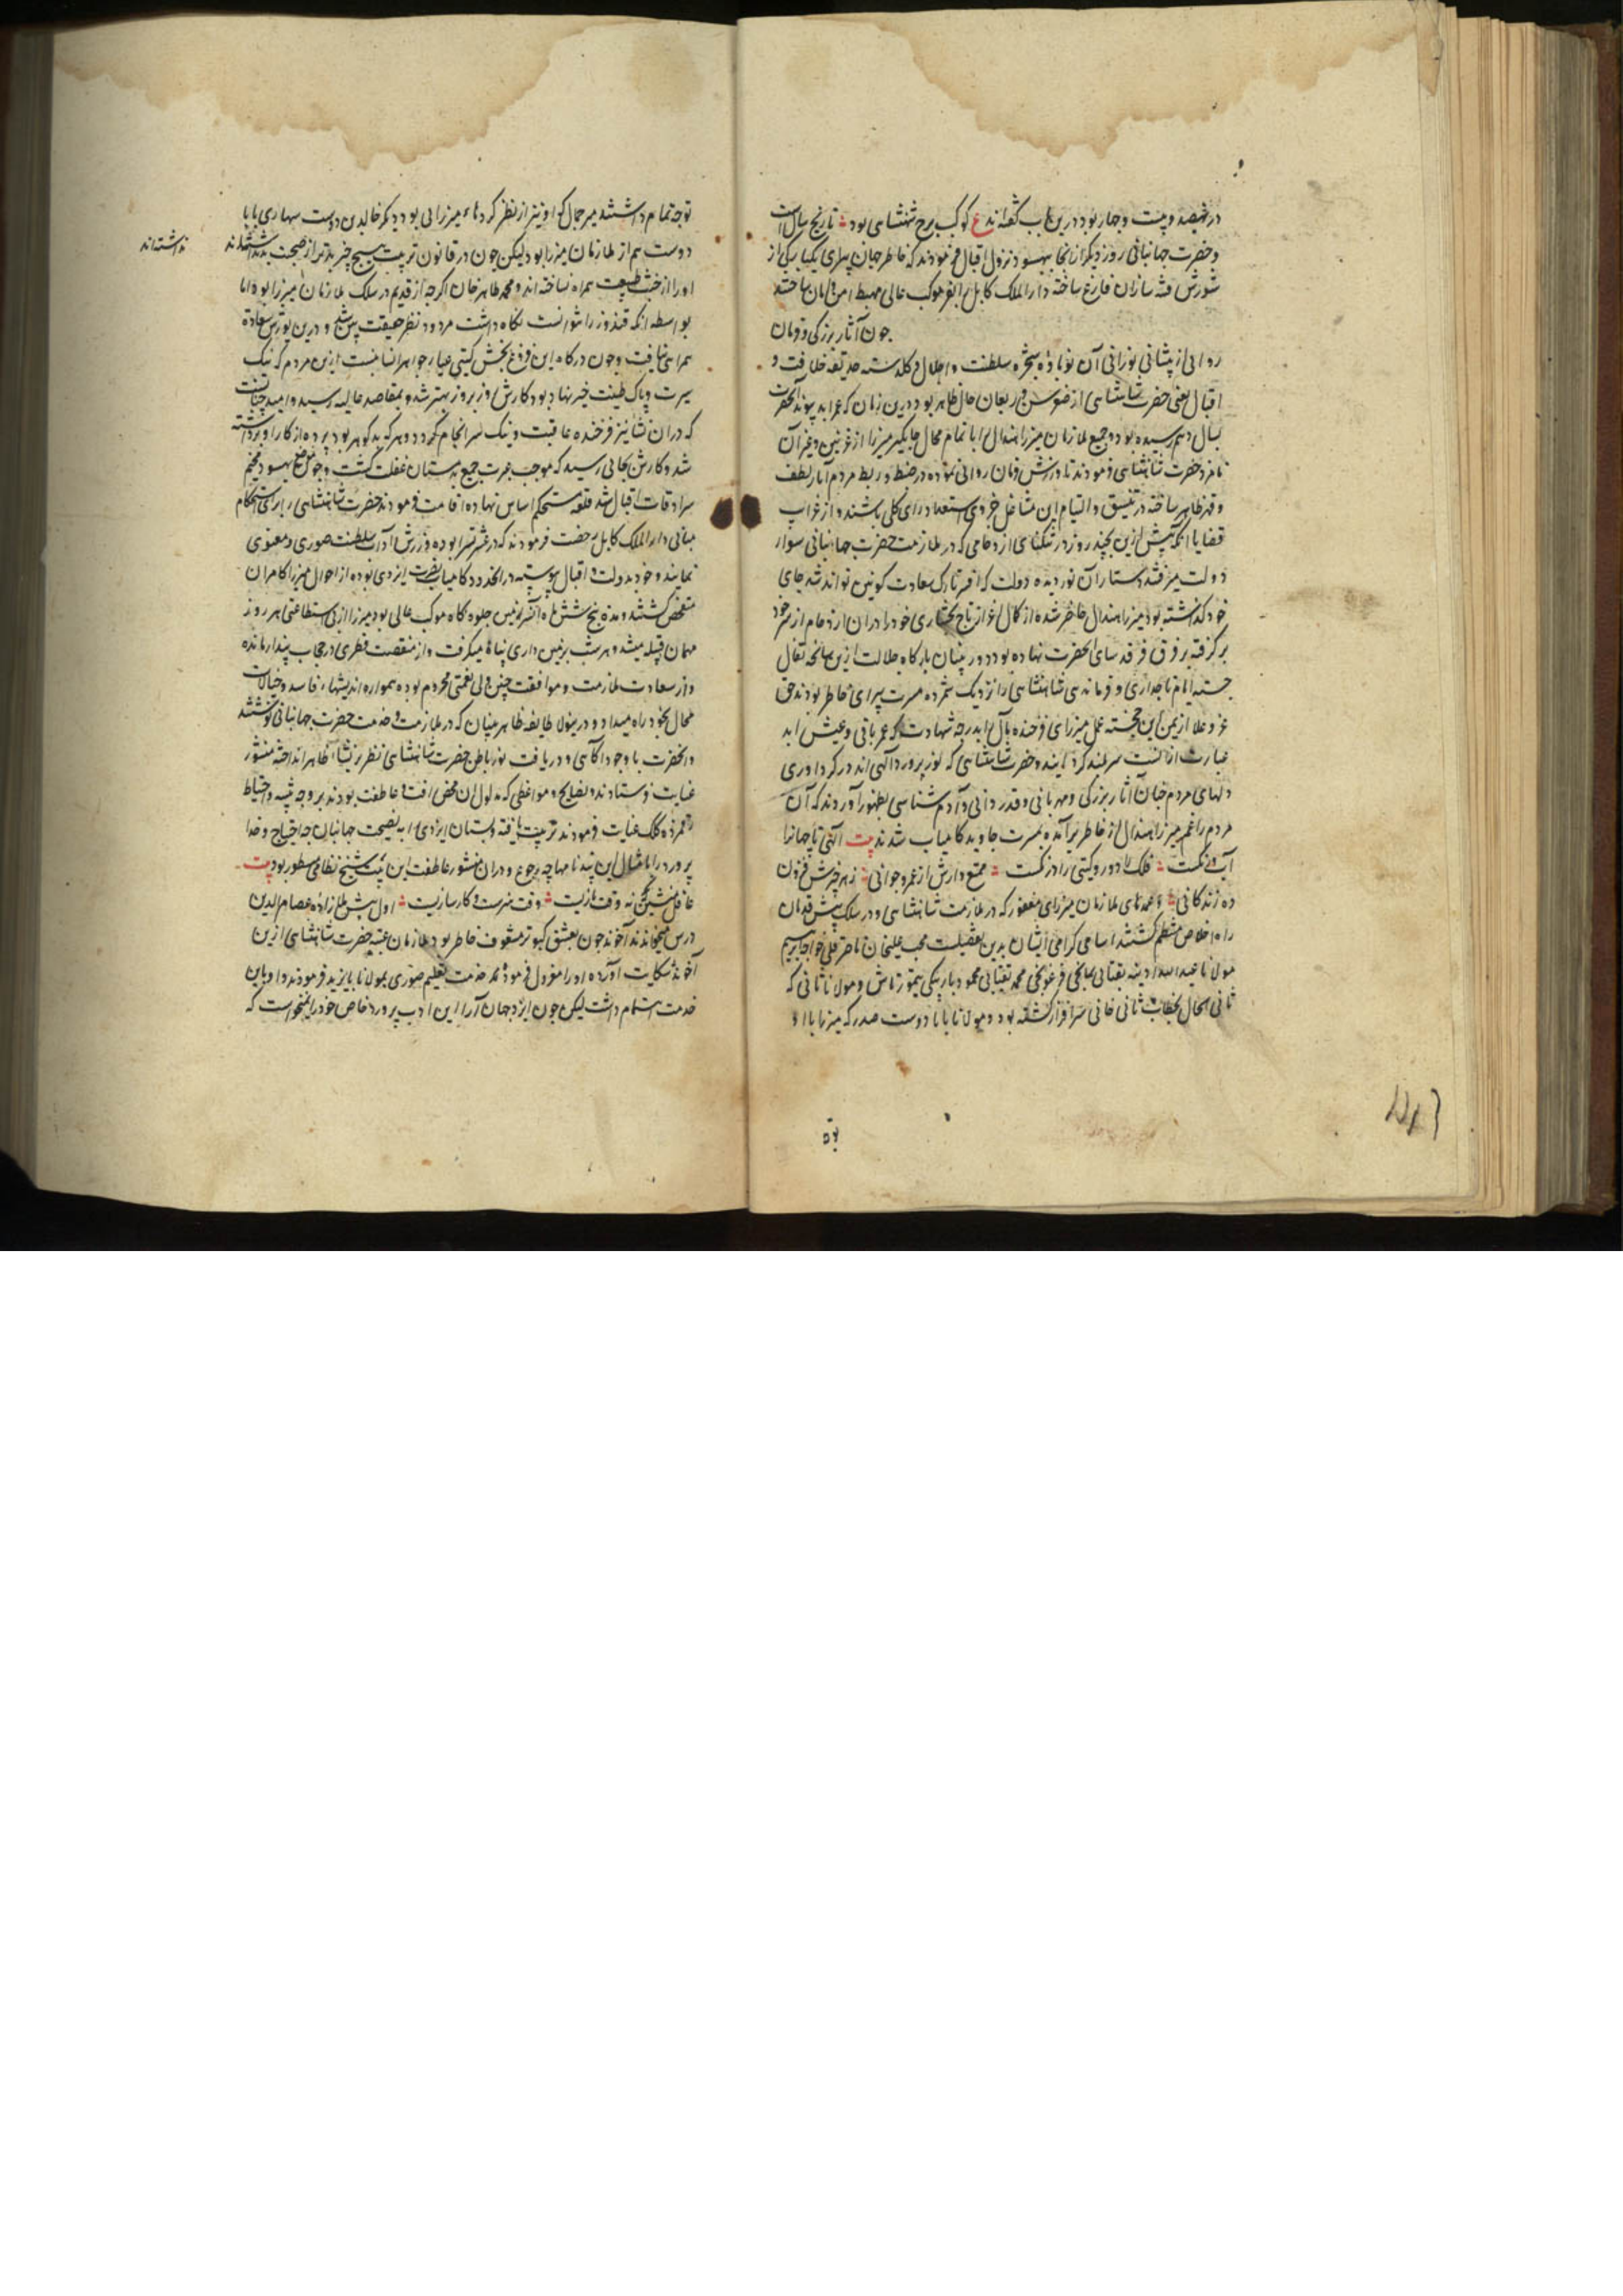 در نهصد و بیست و چهار بود درین باب گفته اند ع کوکب برج شهنشاهی بود تاریخ سال است
و حضرت جهانبانی روز دیگر از انجا بهسود نزول اقبال فرمودند که خاطر جهان پیرای یکبارکی از
شورش فتنه سازان فارغ ساخته دار الملک کابل را بفر موکب عالی مهبط امن و امان ساختند
چون آثار بزرکی و فرمان
روائی از پیشانی نورانی آن نوباوه شجره سلطنت و اجلال و کلدسته حدیقه خلافت و
اقبال یعنی حضرت شاهنشاهی از صغر سن و ریعان حال ظاهر بود درین زمان که عمر ابد پیوند آنحضرت
بسال دهم رسیده بود جمیع ملازمان میرزا هندال را با تمام محال جایکیر میرزا از غزنین و غیر آن
نامزد حضرت شاهنشاهی فرمودند تا ورزش فرمان روائی نموده در ضبط و ربط مردم آثار لطف
و قهر ظاهر ساخته در تنسیق و التیام این مشاغل خردی استعداد رای کلی باشند و از غرایب
قضایا انکه پیش ازین بچند روز در تنکنای ازدحامی که در ملازمت حضرت جهانبانی سوار
دولت میرفتند دستار آن نوردیده دولت که افسر تارک سعادت کونین تواند شد جای
خود کذاشته بود میرزا هندال حاضر شده از کمال اعزاز تاج بختیاری خود را دران ازدحام از سر خود
برکرفته بر فرق فرقد سای آنحضرت نهاده بود دوربینان بارکاه جلالت ازین سانحه تفال
جسته ایام تاجداری و فرماندهی شاهنشاهی را نزدیک شمرده مسرت پیرای خاطر بودند حق
عز و علا از یمن این خجسته عمل میرزای فرخنده مآل را بدرجه شهادت که عمر باقی و عیش ابد
عبارت از انست سربلند کردانید و حضرت شاهنشاهی که نور پرورد الهی اند در کرداوری
دلهای مردم چنان آثار بزرکی و مهربانی و قدردانی و آدم شناسی بظهور آوردند که آن
مردم را غم میرزا هندال از خاطر برآمده بمسرت جاوید کامیاب شدند بیت الهی تا جهانرا
آب و رنکست فلک را دور و کیتی را درنکست ممتع دارش از عمر و جوانی ز هر چیزش فزون
ده زندکانی و عمدهای ملازمان میرزای مغفور که در ملازمت شاهنشاهی و در سلک پیش قدمان
راه اخلاص منتظم کشتند اسامی کرامی ایشان بدین تفصیلست محب علیخان ناصر قلی خواجه ابراهیم
مولانا عبد الله ادینه تقتائی سمانجی قرغوجی محمد تقتائی محمود باربیکی تیمور تاش و مولانا ثانی که
ثانی الحال بخطاب ثانی خانی سرافراز کشته بود و مولانا بابا دوست صدر که میرزا با او
توجه تمام داشتند میر جمال که او نیز از نظر کردهاء میرزائی بود دیکر خالدین دوست سهاری بابا
دوست هم از ملازمان میرزا بود لیکن چون در قانون تربیت هیچ چیز بدتر از صحبت بد نداشته اند
نداشته اند
او را از خبث طبیعت همراه نساخته اند و محمد طاهر خان اکرچه از قدیم در سلک ملازمان میرزا بود اما
بواسطه انکه قندوز را نتوانست نکاه داشت مردود نظر حقیقت بین شد و درین یورش سعادت
همراهی نیافت و چون درکاه این فروغ بخش کیتی عیار جواهر انسانیست ازین مردم که نیک
سیرت و پاک طینت خیر نهاد بود کارش روز بروز بهتر شد و بمقاصد عالیه رسید و امید چنانست
که دران نشا نیز فرخنده عاقبت و نیک سرانجام کردد و هر که بدکوهر بود پرده از کار او برداشته
شد و کارش بجائی رسید که موجب عبرت جمیع بدمستان غفلت کشت و چون موضع بهسود مخیم
سرادقات اقبال شد قلعه مستحکم اساس نهاده اقامت فرمودند حضرت شاهنشاهی را برای استحکام
مبانی دار الملک کابل رخصت فرمودند که در عشرتسرا بوده ورزش آداب سلطنت صوری و معنوی
نمایند و خود بدولت و اقبال پیوسته در انحدود کامیاب نصرت ایزدی بوده از احوال میرزا کامران
متفحص کشتند و مدت پنج شش ماه آن سرزمین جلوه کاه موکب عالی بود میرزا از بی استطاعتی هر روز
مهمان قبیله میشد و هر شب بزمین داری پناه میکرفت و از منقصت فطری در حجاب پندار مانده
و از سعادت ملازمت و موافقت چنین ولی نعمتی محروم بوده همواره اندیشهاء فاسد و خیالات
محال بخود راه میداد و درینولا طایفه ظاهر بینان که در ملازمت و خدمت حضرت جهانبانی کوشند
و آنحضرت با وجود آکاهی و دریافت نور باطن حضرت شاهنشاهی نظر بر نشاء ظاهر انداخته منشور
عنایت فرستادند و نصایح و مواعظی که مدلول ان محض رافت و عاطفت بود بر وجه تنبیه و احتیاط
رقمزده کلک عنایت فرمودند تربیت یافته دبستان ایزدی را به نصیحت جهانبان چه احتیاج و خدا
پرورد را بامثال این پندنامها چه رجوع و دران منشور عاطفت این بیت شیخ نظامی مسطور بود بیت
غافل منشین نه وقت بازیست وقت هنرست و کارسازیست اول پیش ملا زاده عصام الدین
درس میخواندند آخوند چون بعشق کبوتر مشعوف خاطر بود ملازمان عتبه حضرت شاهنشاهی ازین
آخوند شکایت آورده او را معزول فرموده خدمت تعلیم صوری بمولانا بایزید فرمودند و او باین
خدمت اهتمام داشت لیکن چون ایزد جهان آرا این ادب پرورد خاص خود را نمیخواست که